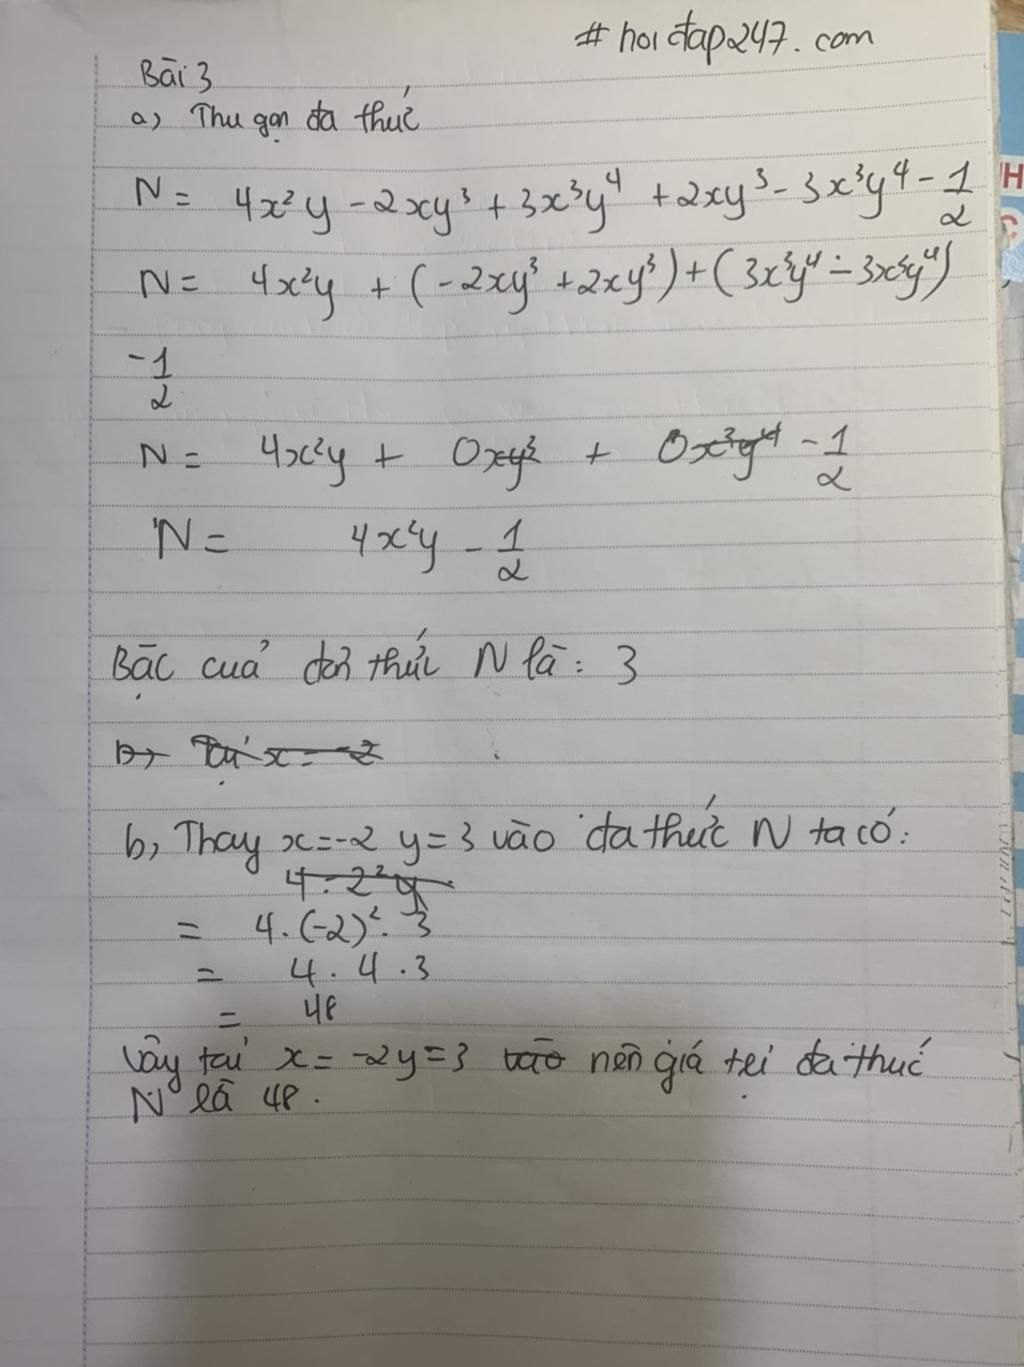 # hoi đap247.com
Bài 3
a, Thu gọn đa thức
N = 4x²y - 2xy³ + 3x³y⁴ + 2xy³ - 3x³y⁴ - 1/2
N = 4x²y + (-2xy³ + 2xy³) + (3x³y⁴ - 3x³y⁴)
- 1/2
N = 4x²y + 0xy³ + 0x³y⁴ - 1/2
N = 4x²y - 1/2
Bậc của đa thức N là: 3
b, Tại x = -2
b, Thay x=-2 y=3 vào đa thức N ta có:
4.2²y
= 4.(-2)².3
= 4.4.3
= 48
Vậy tại x = -2 y=3 vào nên giá trị đa thức
N là 48.